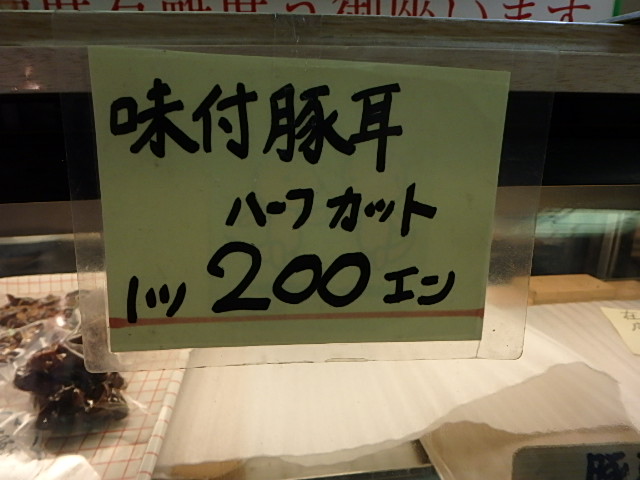 味付豚耳
ハーフカット
1ツ 200エン